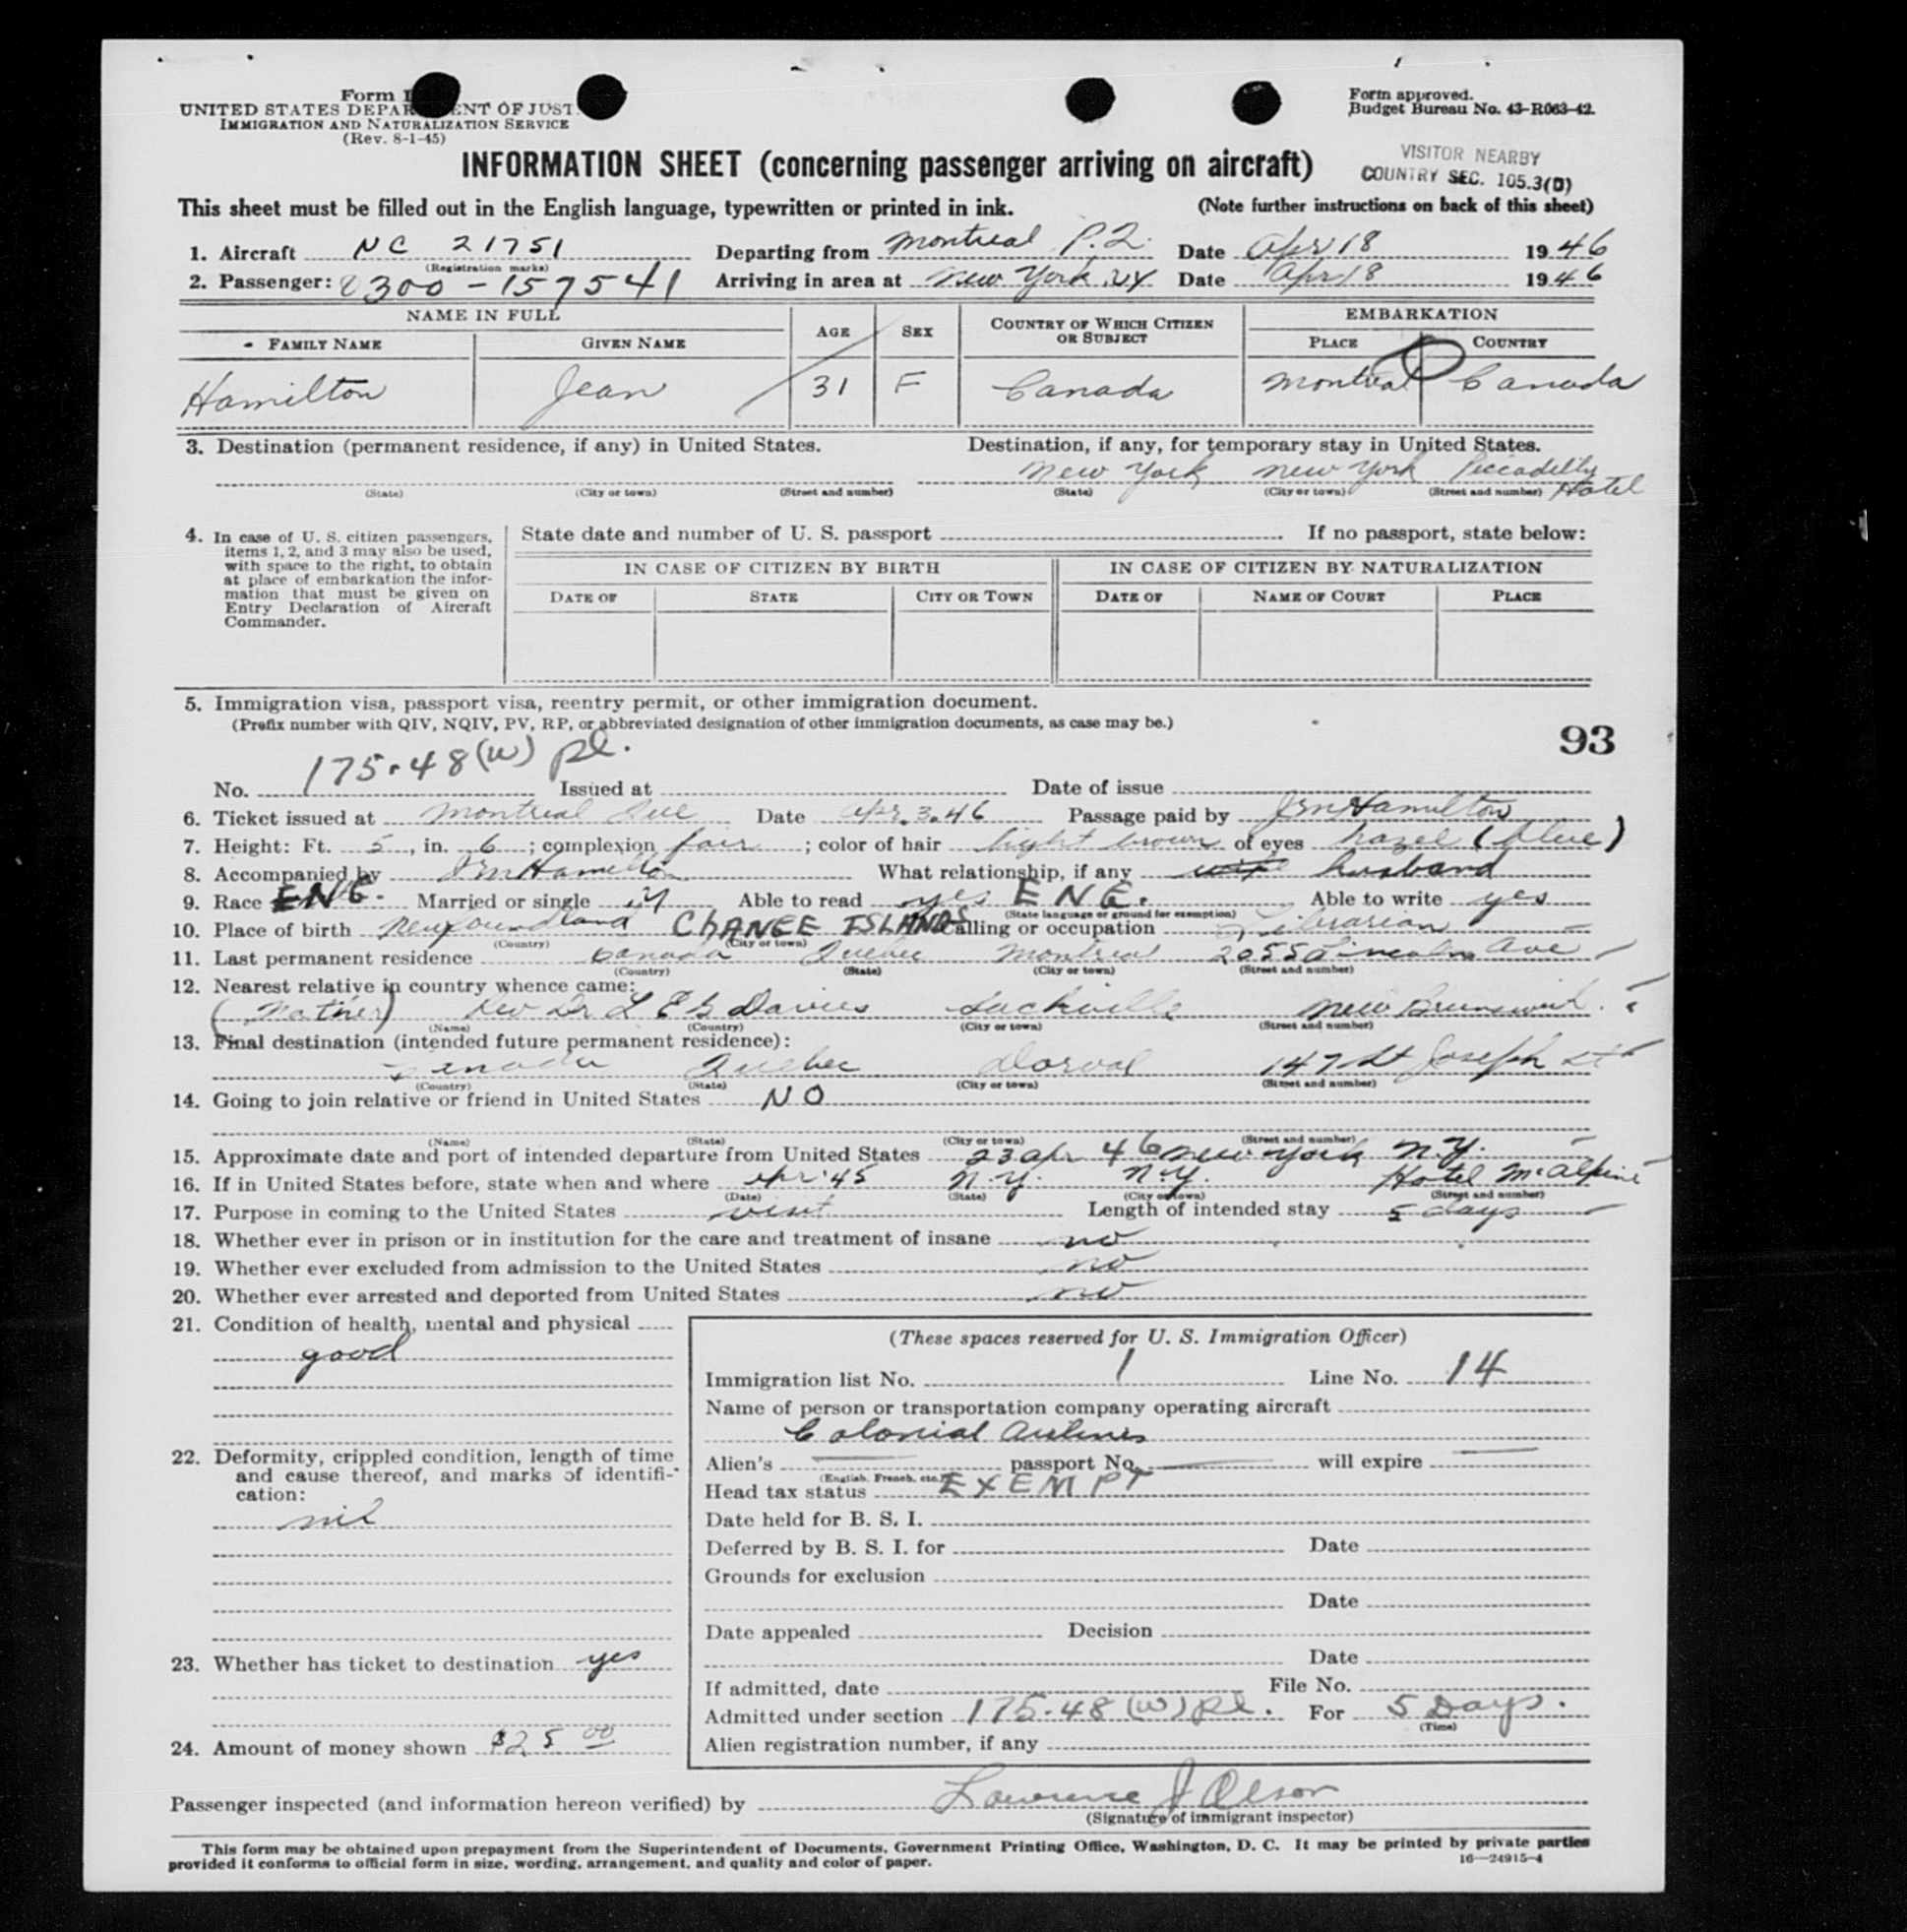 Form I
UNITED STATES DEPAR ENT OF JUST
IMMIGRATION AND NATURALIZATION SERVICE
(Rev. 8-1-45)
Form approved.
Budget Bureau No. 43-R063-42.
INFORMATION SHEET (concerning passenger arriving on aircraft)
VISITOR NEARBY
COUNTRY SEC. 105.3(D)
This sheet must be filled out in the English language, typewritten or printed in ink. (Note further instructions on back of this sheet)
1. Aircraft NC 21751 Departing from Montreal P.Q. Date Apr 18 1946
(Registration marks)
2. Passenger: 0300-157541 Arriving in area at New York, NY Date Apr 18 1946
NAME IN FULL AGE SEX COUNTRY OF WHICH CITIZEN OR SUBJECT EMBARKATION
FAMILY NAME GIVEN NAME PLACE COUNTRY
Hamilton Jean 31 F Canada Montreal Canada
3. Destination (permanent residence, if any) in United States. Destination, if any, for temporary stay in United States.
New York New York Piccadilly Hotel
(State) (City or town) (Street and number) (State) (City or town) (Street and number)
4. In case of U. S. citizen passengers, items 1, 2, and 3 may also be used, with space to the right, to obtain at place of embarkation the information that must be given on Entry Declaration of Aircraft Commander.
State date and number of U. S. passport If no passport, state below:
IN CASE OF CITIZEN BY BIRTH IN CASE OF CITIZEN BY NATURALIZATION
DATE OF STATE CITY OR TOWN DATE OF NAME OF COURT PLACE
5. Immigration visa, passport visa, reentry permit, or other immigration document.
(Prefix number with QIV, NQIV, PV, RP, or abbreviated designation of other immigration documents, as case may be.)
93
No. 175.48(w) pl. Issued at Date of issue
6. Ticket issued at Montreal Que Date Apr. 3. 46 Passage paid by JRM Hamilton
7. Height: Ft. 5, in. 6; complexion fair; color of hair light brown of eyes hazel (blue)
8. Accompanied by JRM Hamilton What relationship, if any wife husband
9. Race ENG. Married or single M Able to read yes ENG. Able to write yes
(State language or ground for exemption)
10. Place of birth Newfoundland CHANGE ISLANDS Calling or occupation Librarian
(Country) (City or town)
11. Last permanent residence Canada Quebec Montreal 2055 Lincoln Ave
(Country) (State) (City or town) (Street and number)
12. Nearest relative in country whence came:
Rev Dr Davies Sackville New Brunswick.
(Name) (Country) (City or town) (Street and number)
13. Final destination (intended future permanent residence):
Canada Quebec Dorval 147 St Joseph St
(Country) (State) (City or town) (Street and number)
14. Going to join relative or friend in United States NO
(Name) (State) (City or town) (Street and number)
15. Approximate date and port of intended departure from United States 23 Apr 46 New York N.Y.
16. If in United States before, state when and where Apr '45 N.Y. N.Y. Hotel McAlpine
(Date) (State) (City or town) (Street and number)
17. Purpose in coming to the United States visit Length of intended stay 5 days
18. Whether ever in prison or in institution for the care and treatment of insane no
19. Whether ever excluded from admission to the United States no
20. Whether ever arrested and deported from United States no
21. Condition of health, mental and physical
good
22. Deformity, crippled condition, length of time and cause thereof, and marks of identification:
nil
23. Whether has ticket to destination yes
24. Amount of money shown $25 00
(These spaces reserved for U. S. Immigration Officer)
Immigration list No. 1 Line No. 14
Name of person or transportation company operating aircraft
Colonial Airlines
Alien's passport No. will expire
(English, French, etc.)
Head tax status EXEMPT
Date held for B. S. I.
Deferred by B. S. I. for Date
Grounds for exclusion
Date
Date appealed Decision
Date
If admitted, date File No.
Admitted under section 175.48 (w) pl. For 5 Days.
(Time)
Alien registration number, if any
Passenger inspected (and information hereon verified) by Lawrence J Olson
(Signature of immigrant inspector)
This form may be obtained upon prepayment from the Superintendent of Documents, Government Printing Office, Washington, D. C. It may be printed by private parties
provided it conforms to official form in size, wording, arrangement, and quality and color of paper.
16—24915-4